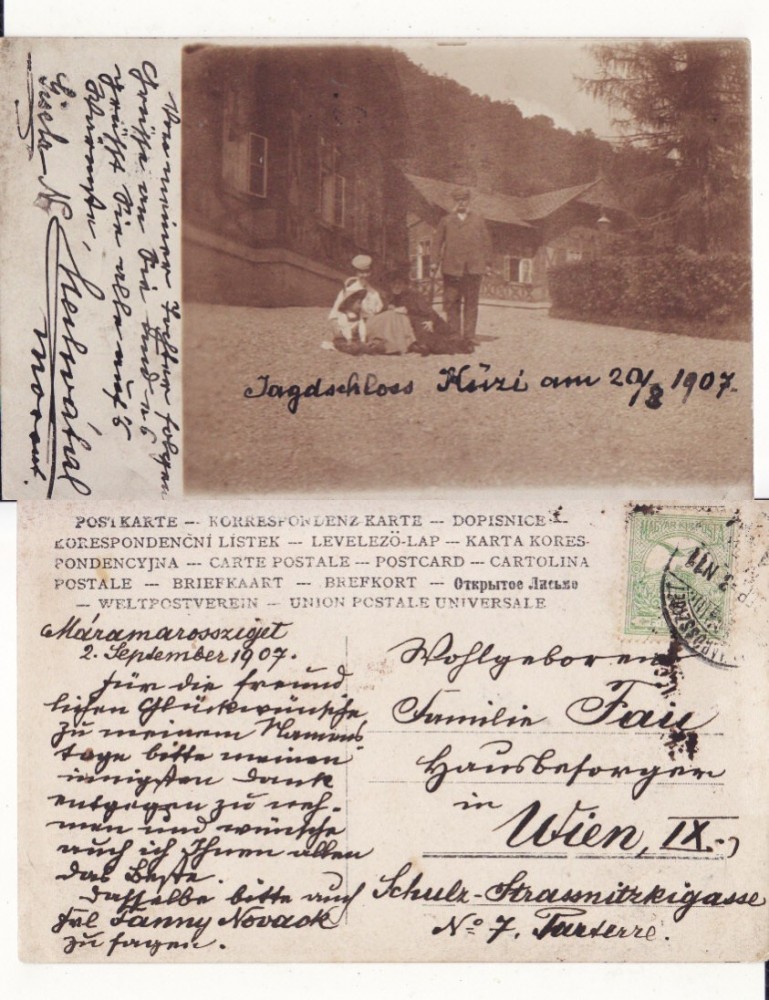 Von meiner Tochter folgen
Grüße an Sie und es
grüßt Sie alle auf's
Wärmste,
Gisela N.
Jagdschloss Kűzi am 20/8 1907.
POSTKARTE — KORRESPONDENZ-KARTE — DOPISNICE —
KORESPONDENČNÍ LÍSTEK — LEVELEZŐ-LAP — KARTA KORES-
PONDENCYJNA — CARTE POSTALE — POSTCARD — CARTOLINA
POSTALE — BRIEFKAART — BREFKORT — Открытое Письмо
— WELTPOSTVEREIN — UNION POSTALE UNIVERSELLE
MAGYAR KIR. POSTA
Máramarossziget
2. September 1907.
Für die freund
lichen Glückwünsche
zu meinem Namens
tage bitte meinen
innigsten Dank
entgegen zu neh-
men und wünsche
auch ich Ihnen allen
das Beste.
Dasselbe bitte auch
Frl Fanny Novack
zu sagen.
Wohlgeboren
Familie Fau
Hausbesorger
in
Wien, IX.
Schulz-Strassnitzkigasse
No 7, Parterre.